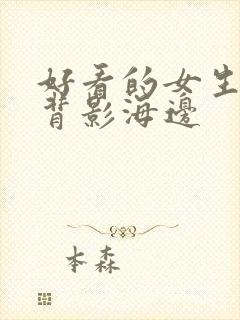 好看的女生
背影海邊
本森